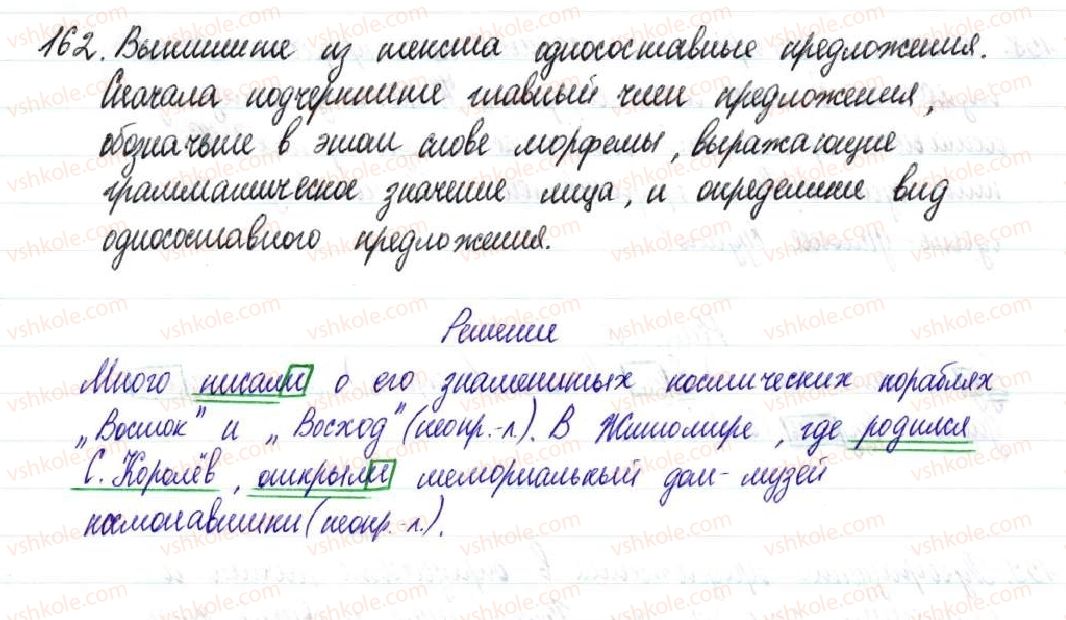 162. Выпишите из текста односоставные предложения.
Сначала подчеркните главный член предложения,
обозначьте в этом слове морфемы, выражающие
грамматическое значение лица, и определите вид
односоставного предложения.
Решение
Много писали о его знаменитых космических кораблях
„Восток" и „Восход" (неопр.-л.). В Житомире, где родился
С. Королёв, открыли мемориальный дом-музей
космонавтики (неопр.-л.).
vshkole.com